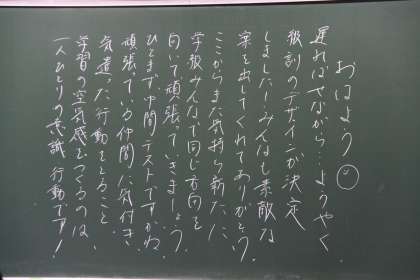 おはよう
遅ればせながら…ようやく
級訓のデザインが決定
しました!みんなも素敵な
案を出してくれてありがとう
ここからまた気持ち新たに、
学級みんなで同じ方向を
向いて頑張っていきましょう。
ひとまず中間テストですかね
頑張っている仲間に気付き、
気遣った行動をとること
学習の空気感をつくるのは
一人ひとりの意識、行動です!